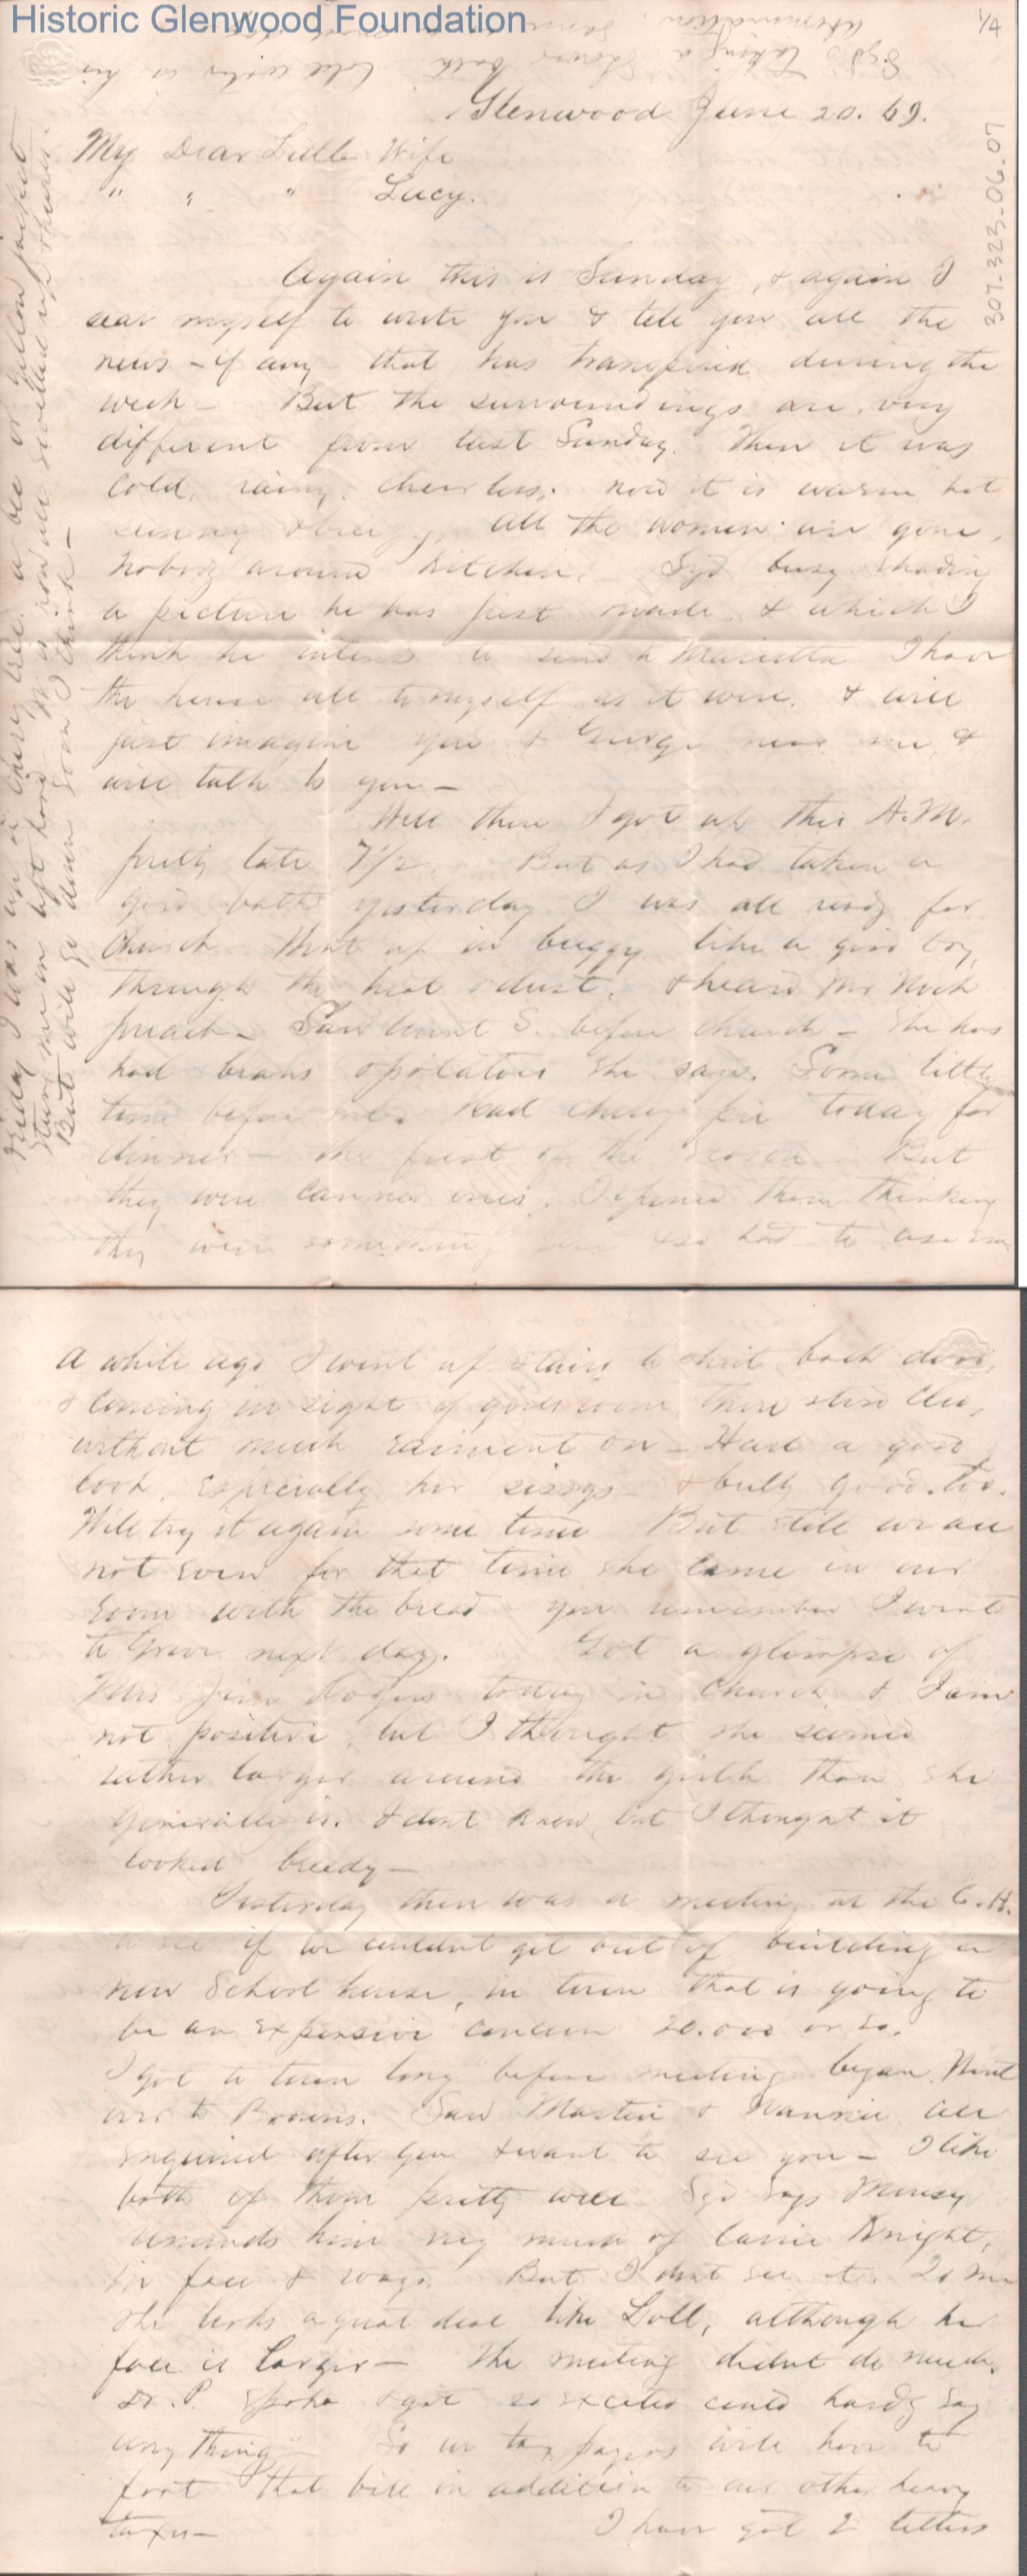 Historic Glenwood Foundation
1/4
307.323-06.07
Syd's taking a shower bath. Cold water in his
Glenwood June 20. 69.
My Dear Little Wife
" " " Lucy.
Again this is Sunday, & again I
seat myself to write you & tell you all the
news - if any that has transpired during the
week - But the surroundings are very
different from last Sunday. Then it was
cold, rainy, cheerless; now it is warm hot
sunny & All the women are gone,
Nobody around kitchen. Syd busy shading
a picture he has just made & which I
think he intends to send to Marietta I have
the house all to myself as it were. & will
just imagine you & George near me, &
will talk to you -
Well then I got up this A.M.
pretty late 7 1/2. But as I had taken a
good bath yesterday I was all ready for
Church. Went up in buggy like a good boy,
through the heat & dust. & heard Mr
preach - Saw Aunt S. before church - She has
had beans & potatoes she says. Some little
time before Had cherry pie today for
dinner - the first of the season. But
they were canned ones. I opened them thinking
they were something had to use
Friday I was up in cherry tree & a bee or yellow jacket
stung me on left hand & it is now all swelled up
But will go down soon I think -
A while ago I went up stairs to shut back door,
& coming in sight of girls room there stood
without much raiment on - Had a good
look, especially her & bully good too.
Will try it again some time But still we are
not even for that time she came in our
room with the bread - you remember I went
to next day. Got a glimpse of
Mrs Rogers today in Church. & I am
not positive, but I thought she seemed
rather larger around the girth than she
generally is. I dont know but I thought it
looked breedy -
Yesterday there was a meeting at the C.H.
to see if we couldnt get out of building a
new School house, in town that is going to
be an expensive concern 20.000 or so.
I got to town long before meeting began. Went
over to Browns. Saw & Nannie all
enquired after you & want to see you - I like
both of them pretty well Syd says
reminds him very much of Carrie Knight,
in face & ways. But I dont see it. To me
she looks a great deal like Doll, although her
face is larger - The meeting didnt do much.
Dr. P. spoke & got so excited could hardly say
any thing - So we tax payers will have to
foot that bill in addition to our other heavy
taxes - I have got 2 letters